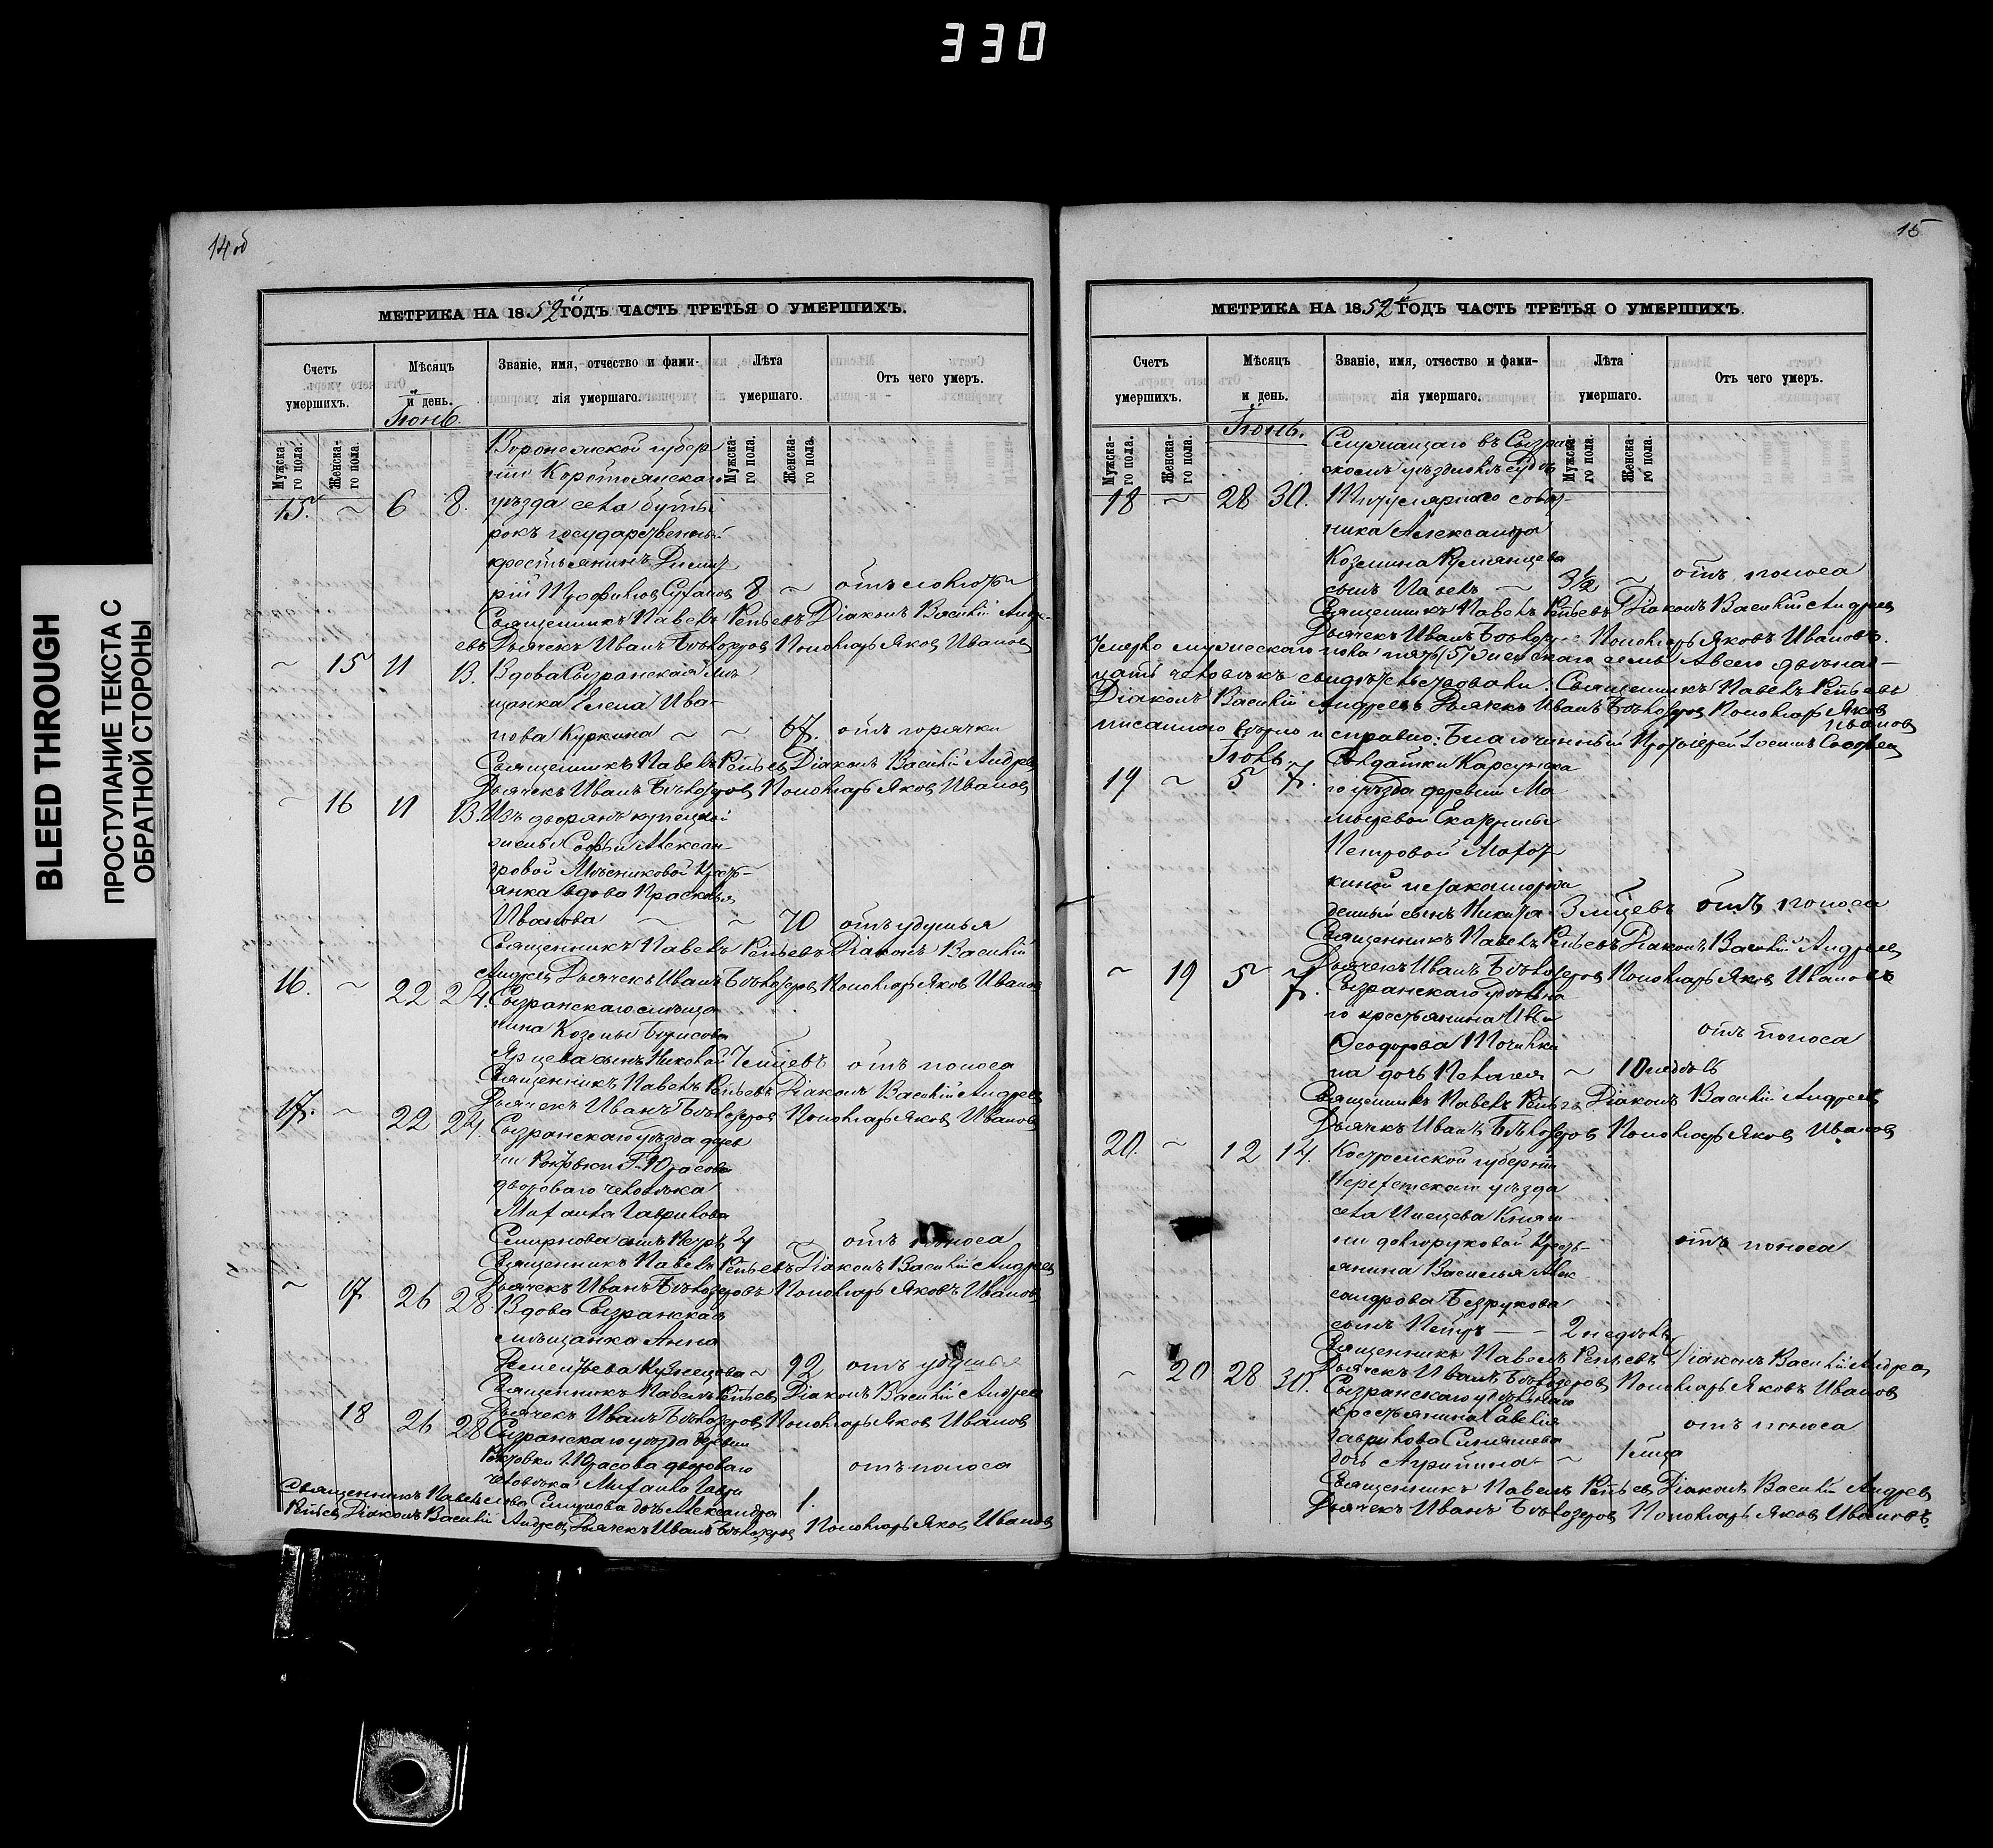 330
BLEED THROUGH
ПРОСТУПАНИЕ ТЕКСТА С
ОБРАТНОЙ СТОРОНЫ
14 об
МЕТРИКА НА 1852й ГОДЪ ЧАСТЬ ТРЕТЬЯ О УМЕРШИХЪ.
Счетъ умершихъ.
Мѣсяцъ и день.
Званіе, имя, отчество и фами-
лія умершаго.
Лѣта умершаго.
Отъ чего умеръ.
Іюнь.
Мужска-
го пола.
Женска-
го пола.
Мужска-
го пола.
Женска-
го пола.
Воронежской губер
ніи Коротоякскаго
15. ~ 6 8. уѣзда села
рокъ государственный
крестьянинъ Димит
рій 8 ~
Священникъ Павелъ Репьевъ Діаконъ Василій Андре-
евъ Дьячекъ Иванъ Бѣлозеровъ Пономарь Яковъ Ивановъ
~ 15 11 13. Вдова Сызранская мѣ
щанка Елена Ива-
нова Куркина ~ ~ 67. отъ горячки
Священникъ Павелъ Репьевъ Діаконъ Василій Андреевъ
Дьячекъ Иванъ Бѣлозеровъ Пономарь Яковъ Ивановъ
~ 16 11 13. Изъ дворянъ купецкой
жены Софьи Алексан-
дровой Мясниковой Кресть-
янка вдова Прасковья
Иванова ~ ~ 70 отъ удушья
Священникъ Павелъ Репьевъ Діаконъ Василій
Андреевъ Дьячекъ Иванъ Бѣлозеровъ Пономарь Яковъ Ивановъ
16. ~ 22 24. Сызранскаго мѣща
нина Козьмы Борисова
сынъ Николай 7 мѣсцевъ отъ поноса
Священникъ Павелъ Репьевъ Діаконъ Василій Андреевъ
Дьячекъ Иванъ Бѣлозеровъ Пономарь Яковъ Ивановъ
17. ~ 22 24. Сызранскаго уѣзда дерев
ни Покровки Г. Юрасова
двороваго человѣка
Михаила Гаврилова
Смирнова сынъ Петръ 4 ~ отъ поноса
Священникъ Павелъ Репьевъ Діаконъ Василій Андреевъ
Дьячекъ Иванъ Бѣлозеровъ Пономарь Яковъ Ивановъ
~ 17 26 28. Вдова Сызранская
мѣщанка Анна
Кузнецова ~ 92 отъ удушья
Священникъ Павелъ Репьевъ Діаконъ Василій Андреевъ
Дьячекъ Иванъ Бѣлозеровъ Пономарь Яковъ Ивановъ
18 26 28 Сызранскаго уѣзда деревни
Покровки Г. Юрасова двороваго отъ поноса
человѣка Михаила Гаври
лова Смирнова дочь Александра 1.
Священникъ Павелъ
Репьевъ Діаконъ Василій Андреевъ Дьячекъ Иванъ Бѣлозеровъ Пономарь Яковъ Ивановъ
15
МЕТРИКА НА 1852й ГОДЪ ЧАСТЬ ТРЕТЬЯ О УМЕРШИХЪ.
Счетъ умершихъ.
Мѣсяцъ и день.
Званіе, имя, отчество и фами-
лія умершаго.
Лѣта умершаго.
Отъ чего умеръ.
Іюнь.
Мужска-
го пола.
Женска-
го пола.
Мужска-
го пола.
Женска-
го пола.
Служащаго въ Сызран
скомъ уѣздномъ Судѣ
18 ~ 28 30. Титулярнаго совѣт-
ника Александра
Козьмина Румянцева
сынъ Павелъ ~ 3½ ~ отъ поноса
Священникъ Павелъ Репьевъ Діаконъ Василій Андреевъ
Дьячекъ Иванъ Бѣлозеровъ Пономарь Яковъ Ивановъ.
Умерло мужескаго пола пять /5/ женскаго семь А всего двѣнад-
цать человѣкъ свидѣтельствовали: Священникъ Павелъ Репьевъ
Діаконъ Василій Андреевъ Дьячекъ Иванъ Бѣлозеровъ Пономарь Яковъ
Ивановъ
писанного вѣрно и справно: Благочинный Протоіерей
Іюль. Солдатки Карсунска
19 ~ 5 7. го уѣзда деревни
Екатерины
Петровой
киной незаконнорож
денный сынъ Никита 3 мѣсцевъ отъ поноса
Священникъ Павелъ Репьевъ Діаконъ Василій Андреевъ
Дьячекъ Иванъ Бѣлозеровъ Пономарь Яковъ Ивановъ
~ 19 5 7. Сызранскаго удѣльна
го крестьянина
Ѳеодорова отъ поноса
на дочь Пелагея ~ 10 недѣль
Священникъ Павелъ Репьевъ Діаконъ Василій Андреевъ
Дьячекъ Иванъ Бѣлозеровъ Пономарь Яковъ Ивановъ
20. ~ 12 14. Костромской губерніи
Нерехтскаго уѣзда
села Княги-
ни Долгоруковой Кресть- отъ поноса
янина Василья Алек
сандрова Безрукова
сынъ Петръ — 2 недѣль
Священникъ Павелъ Репьевъ Діаконъ Василій Андреевъ
Дьячекъ Иванъ Бѣлозеровъ Пономарь Яковъ Ивановъ
~ 20 28 30. Сызранскаго удѣльнаго
крестьянина Савелія
Гаврилова отъ поноса
дочь ~ 1 мѣсца
Священникъ Павелъ Репьевъ Діаконъ Василій Андреевъ
Дьячекъ Иванъ Бѣлозеровъ Пономарь Яковъ Ивановъ.